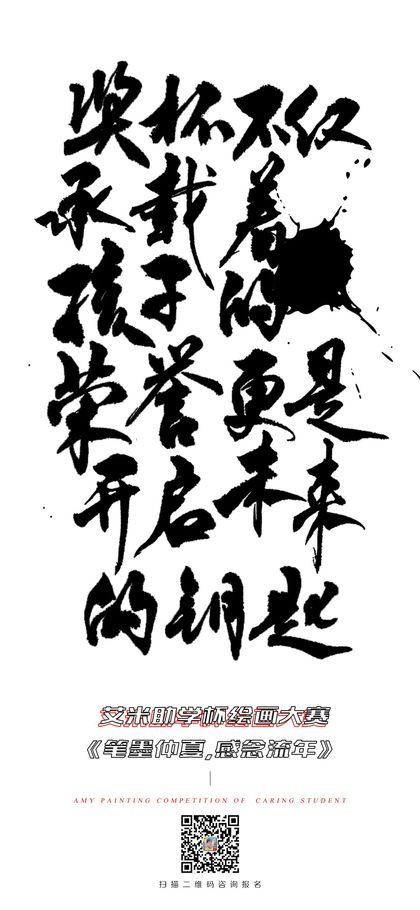 奖杯不仅
承载着
孩子的
荣誉更是
开启未来
的钥匙
艾米助学杯绘画大赛
《笔墨仲夏,感念流年》
AMY PAINTING COMPETITION OF CARING STUDENT
扫描二维码咨询报名